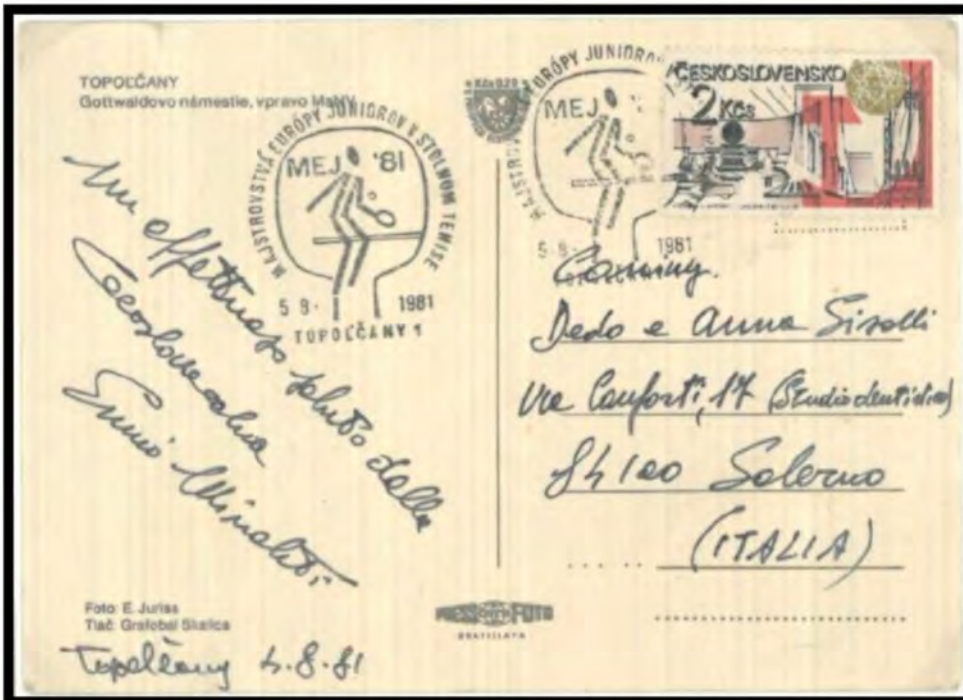 TOPOĽČANY
Gottwaldovo námestie, vpravo MsNV
MAJSTROVSTVÁ EURÓPY JUNIOROV V STOLNOM TENISE
MEJ '81
5.8. 1981
TOPOĽČANY 1
MAJSTROVSTVÁ EURÓPY JUNIOROV
MEJ
5.8. 1981
ČESKOSLOVENSKO
2 Kčs
Un affettuoso saluto dalla
Cecoslovacchia
Dedo e Anna Siselli
Via Conforti, 17 (Studio dentistico)
84100 Salerno
(ITALIA)
Foto: E. Juriss
Tlač: Grafobal Skalica
PRESSFOTO
BRATISLAVA
Topolčany 4.8.81